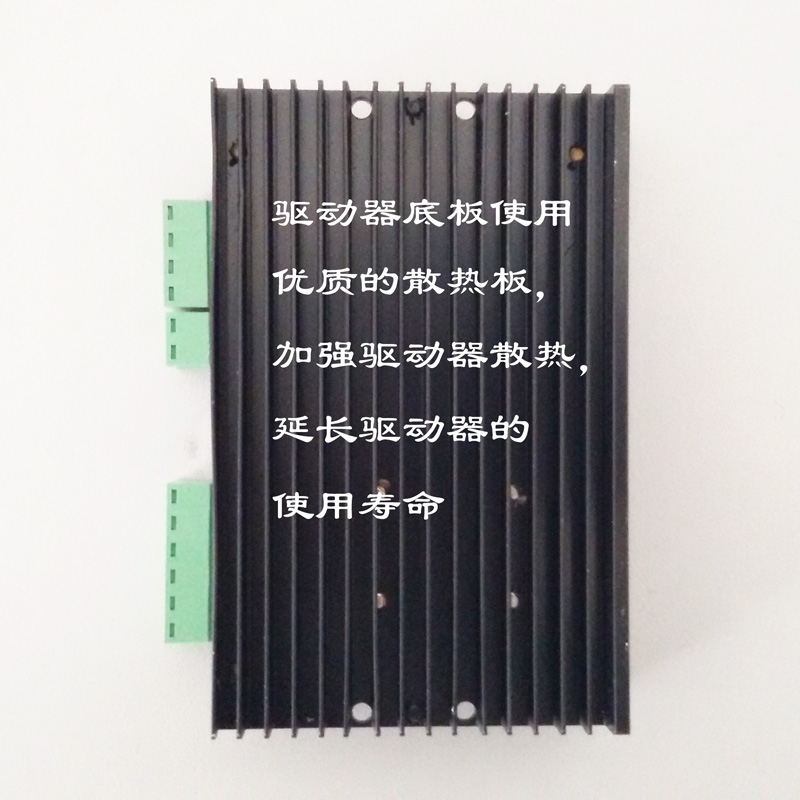 驱动器底板使用
优质的散热板，
加强驱动器散热，
延长驱动器的
使用寿命